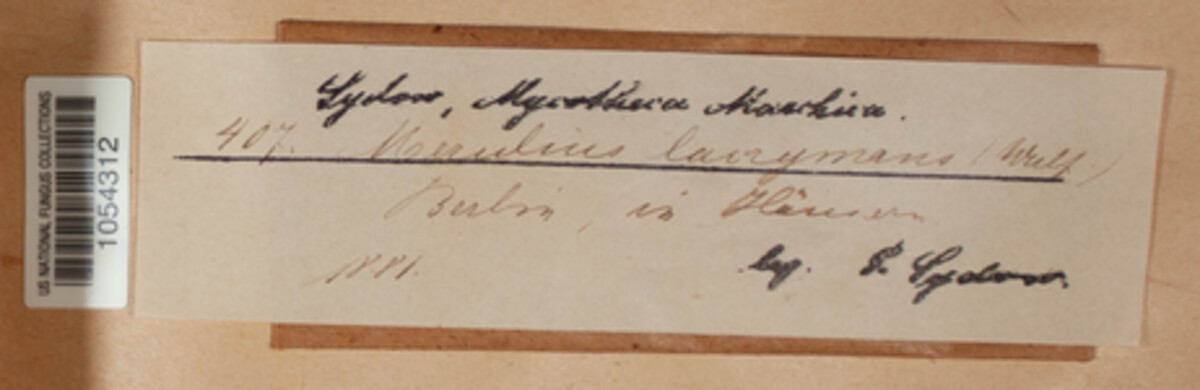 US NATIONAL FUNGUS COLLECTIONS
1054312
Sydow, Mycotheca Marchica.
407. Merulius lacrymans (Wulf.)
Berlin, in Häusern
1881.
leg. P. Sydow.